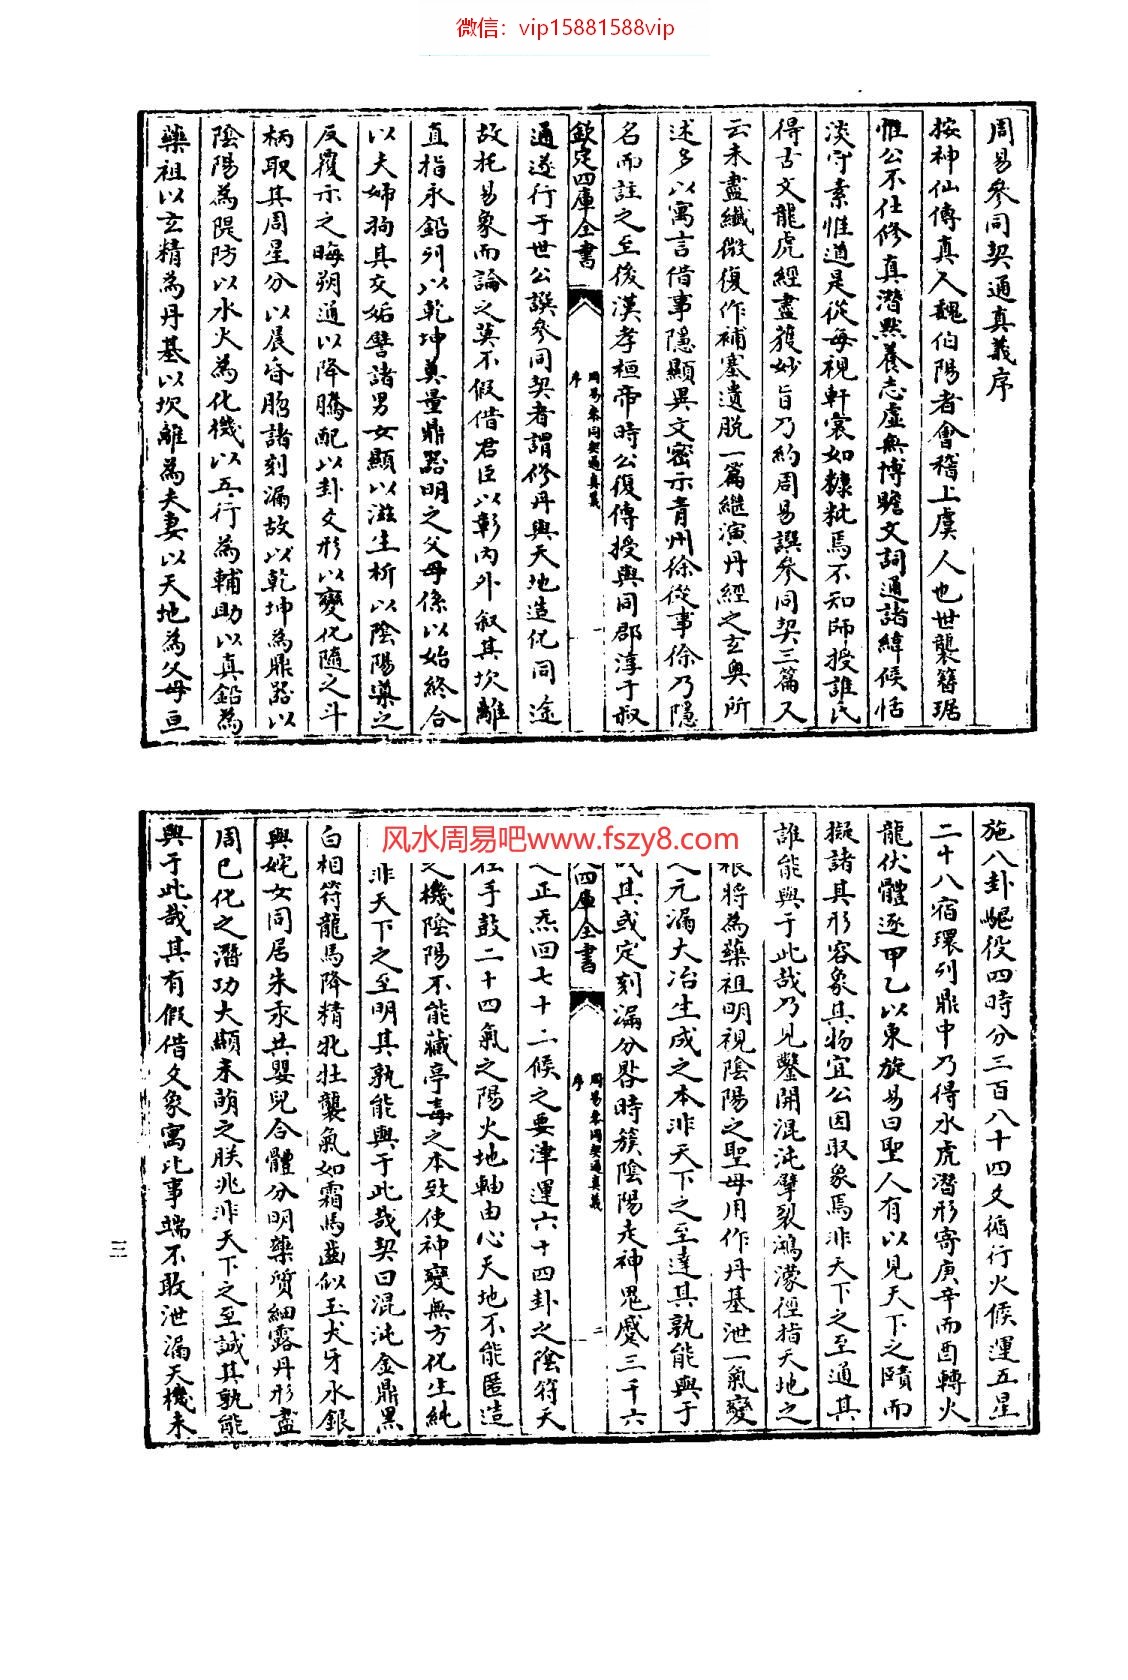 微信：vip15881588vip
周易參同契通真義序
按神仙傳真人魏伯陽者會稽上虞人也世襲簪琚
惟公不仕修真潛黙養志虚無博贍文詞通諸緯候恬
淡守素惟道是從每視軒裳如糠粃焉不知師授誰氏
得古文龍虎經盡獲妙旨乃約周易譔參同契三篇又
云未盡纖微復作補塞遺脱一篇繼演丹經之玄奥所
述多以寓言借事隱顯異文密示青州徐從事徐乃隱
名而註之至後漢孝桓帝時公復傳授與同郡淳于叔
欽定四庫全書
周易參同契通真義
序
一
通遂行于世公譔參同契者謂修丹與天地造化同途
故托易象而論之莫不假借君臣以彰内外叙其坎離
直指汞鉛列以乾坤奠量鼎器明之父母係以始終合
以夫婦拘其交姤譬諸男女顯以滋生析以陰陽導之
反覆示之晦朔通以降騰配以卦爻形以變化隨之斗
柄取其周星分以晨昏昭諸刻漏故以乾坤為鼎器以
陰陽為隄防以水火為化機以五行為輔助以真鉛為
藥祖以玄精為丹基以坎離為夫妻以天地為父母互
施八卦驅役四時分三百八十四爻循行火候運五星
二十八宿環列鼎中乃得水虎潛形寄庚辛而酉轉火
龍伏體逐甲乙以東旋易曰聖人有以見天下之賾而
擬諸其形容象其物宜公因取象焉非天下之至通其
誰能與于此哉乃見鑿開混沌擘裂鴻濛徑指天地之
根將為藥祖明視陰陽之聖母用作丹基泄一氣變
之元漏大冶生成之本非天下之至達其孰能與于
哉其或定刻漏分晷時簇陰陽走神鬼蹙三千六
四庫全書
周易參同契通真義
序
二
之正炁回七十二候之要津運六十四卦之陰符天
在手鼓二十四氣之陽火地軸由心天地不能匿造
之機陰陽不能藏亭毒之本致使神變無方化生純
非天下之至明其孰能與于此哉契曰混沌金鼎黑
白相符龍馬降精牝牡襲氣如霜馬齒似玉犬牙水銀
與姹女同居朱汞共嬰兒合體分明藥質細露丹形盡
周已化之潛功大顯未萌之朕兆非天下之至誠其孰能
與于此哉其有假借爻象寓此事端不敢泄漏天機未
風水周易吧www.fszy8.com
三